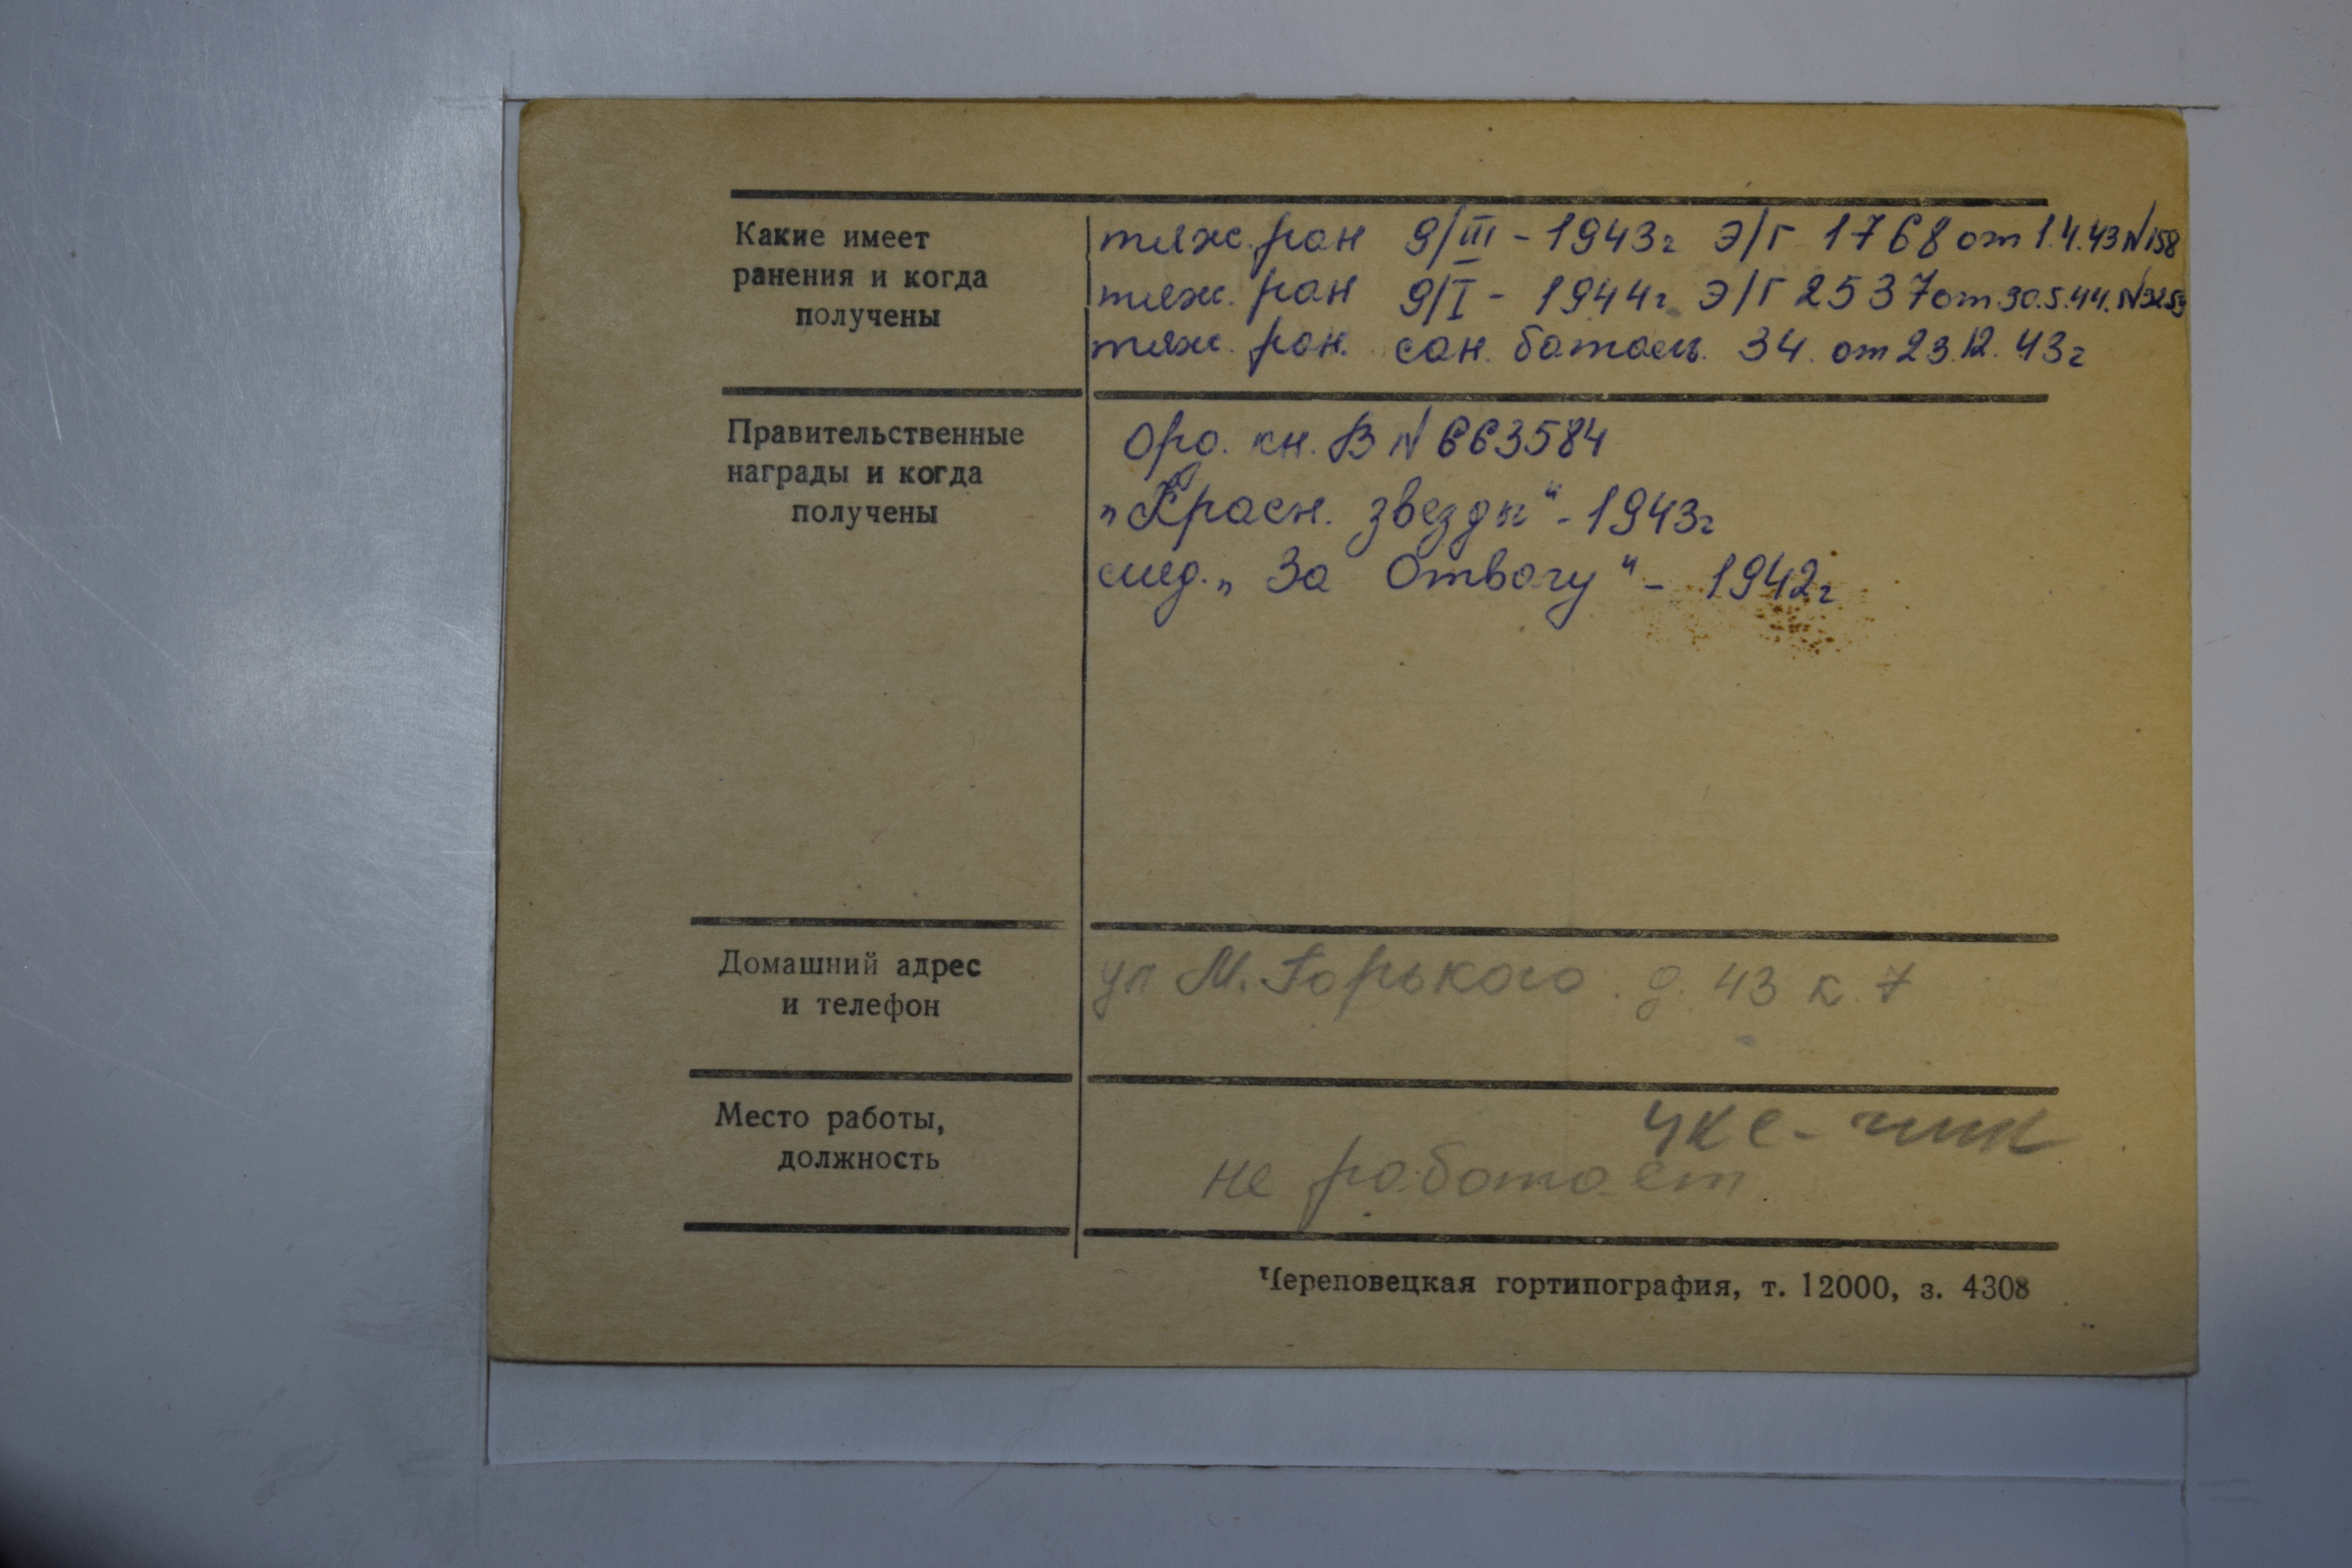 Какие имеет
ранения и когда
получены
тяж. ран 9/III - 1943г Э/Г 1768 от 1.4.43 N 158
тяж. ран 9/I - 1944г Э/Г 2537 от 30.5.44. N
тяж. ран. сан. баталь. 34. от 23.12.43г
Правительственные
награды и когда
получены
Орд. кн. В N 663584
„Красн. звезды" - 1943г
мед. „За Отвагу" - 1942г
Домашний адрес
и телефон
ул М. Горького. д. 43 к. 7
Место работы,
должность
не работает
Череповецкая гортипография, т. 12000, з. 4308